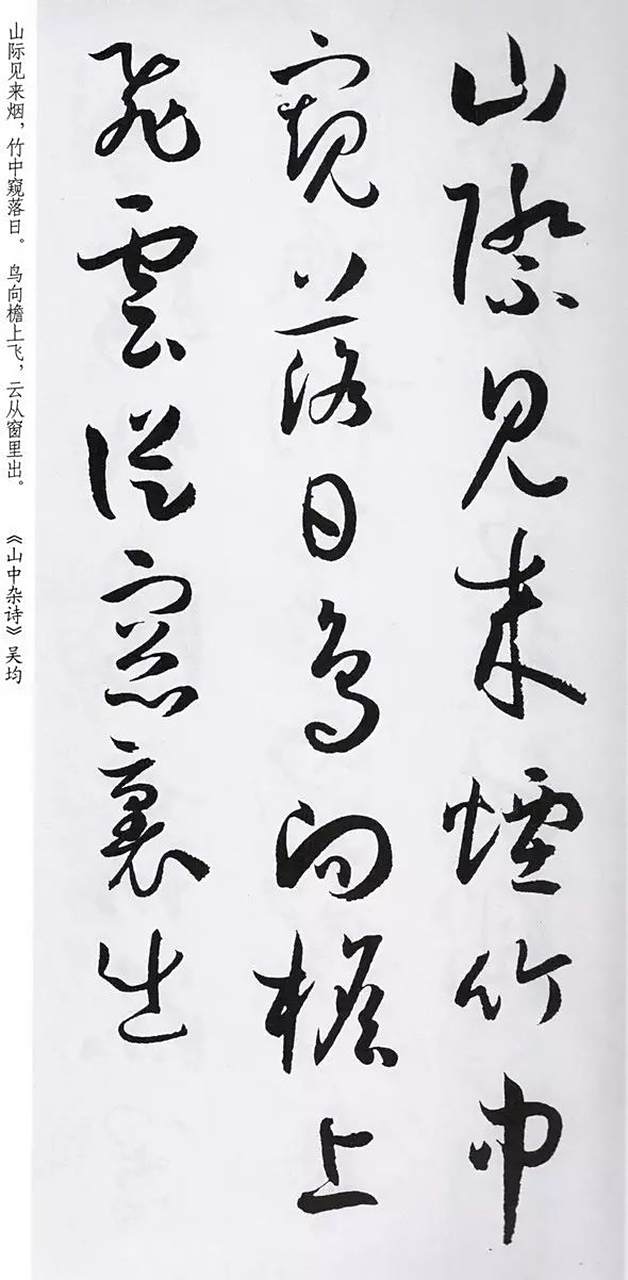 山際見来煙竹中
窺落日鳥向檐上
飛雲從窓裏出
山际见来烟，竹中窥落日。 鸟向檐上飞，云从窗里出。 《山中杂诗》吴均